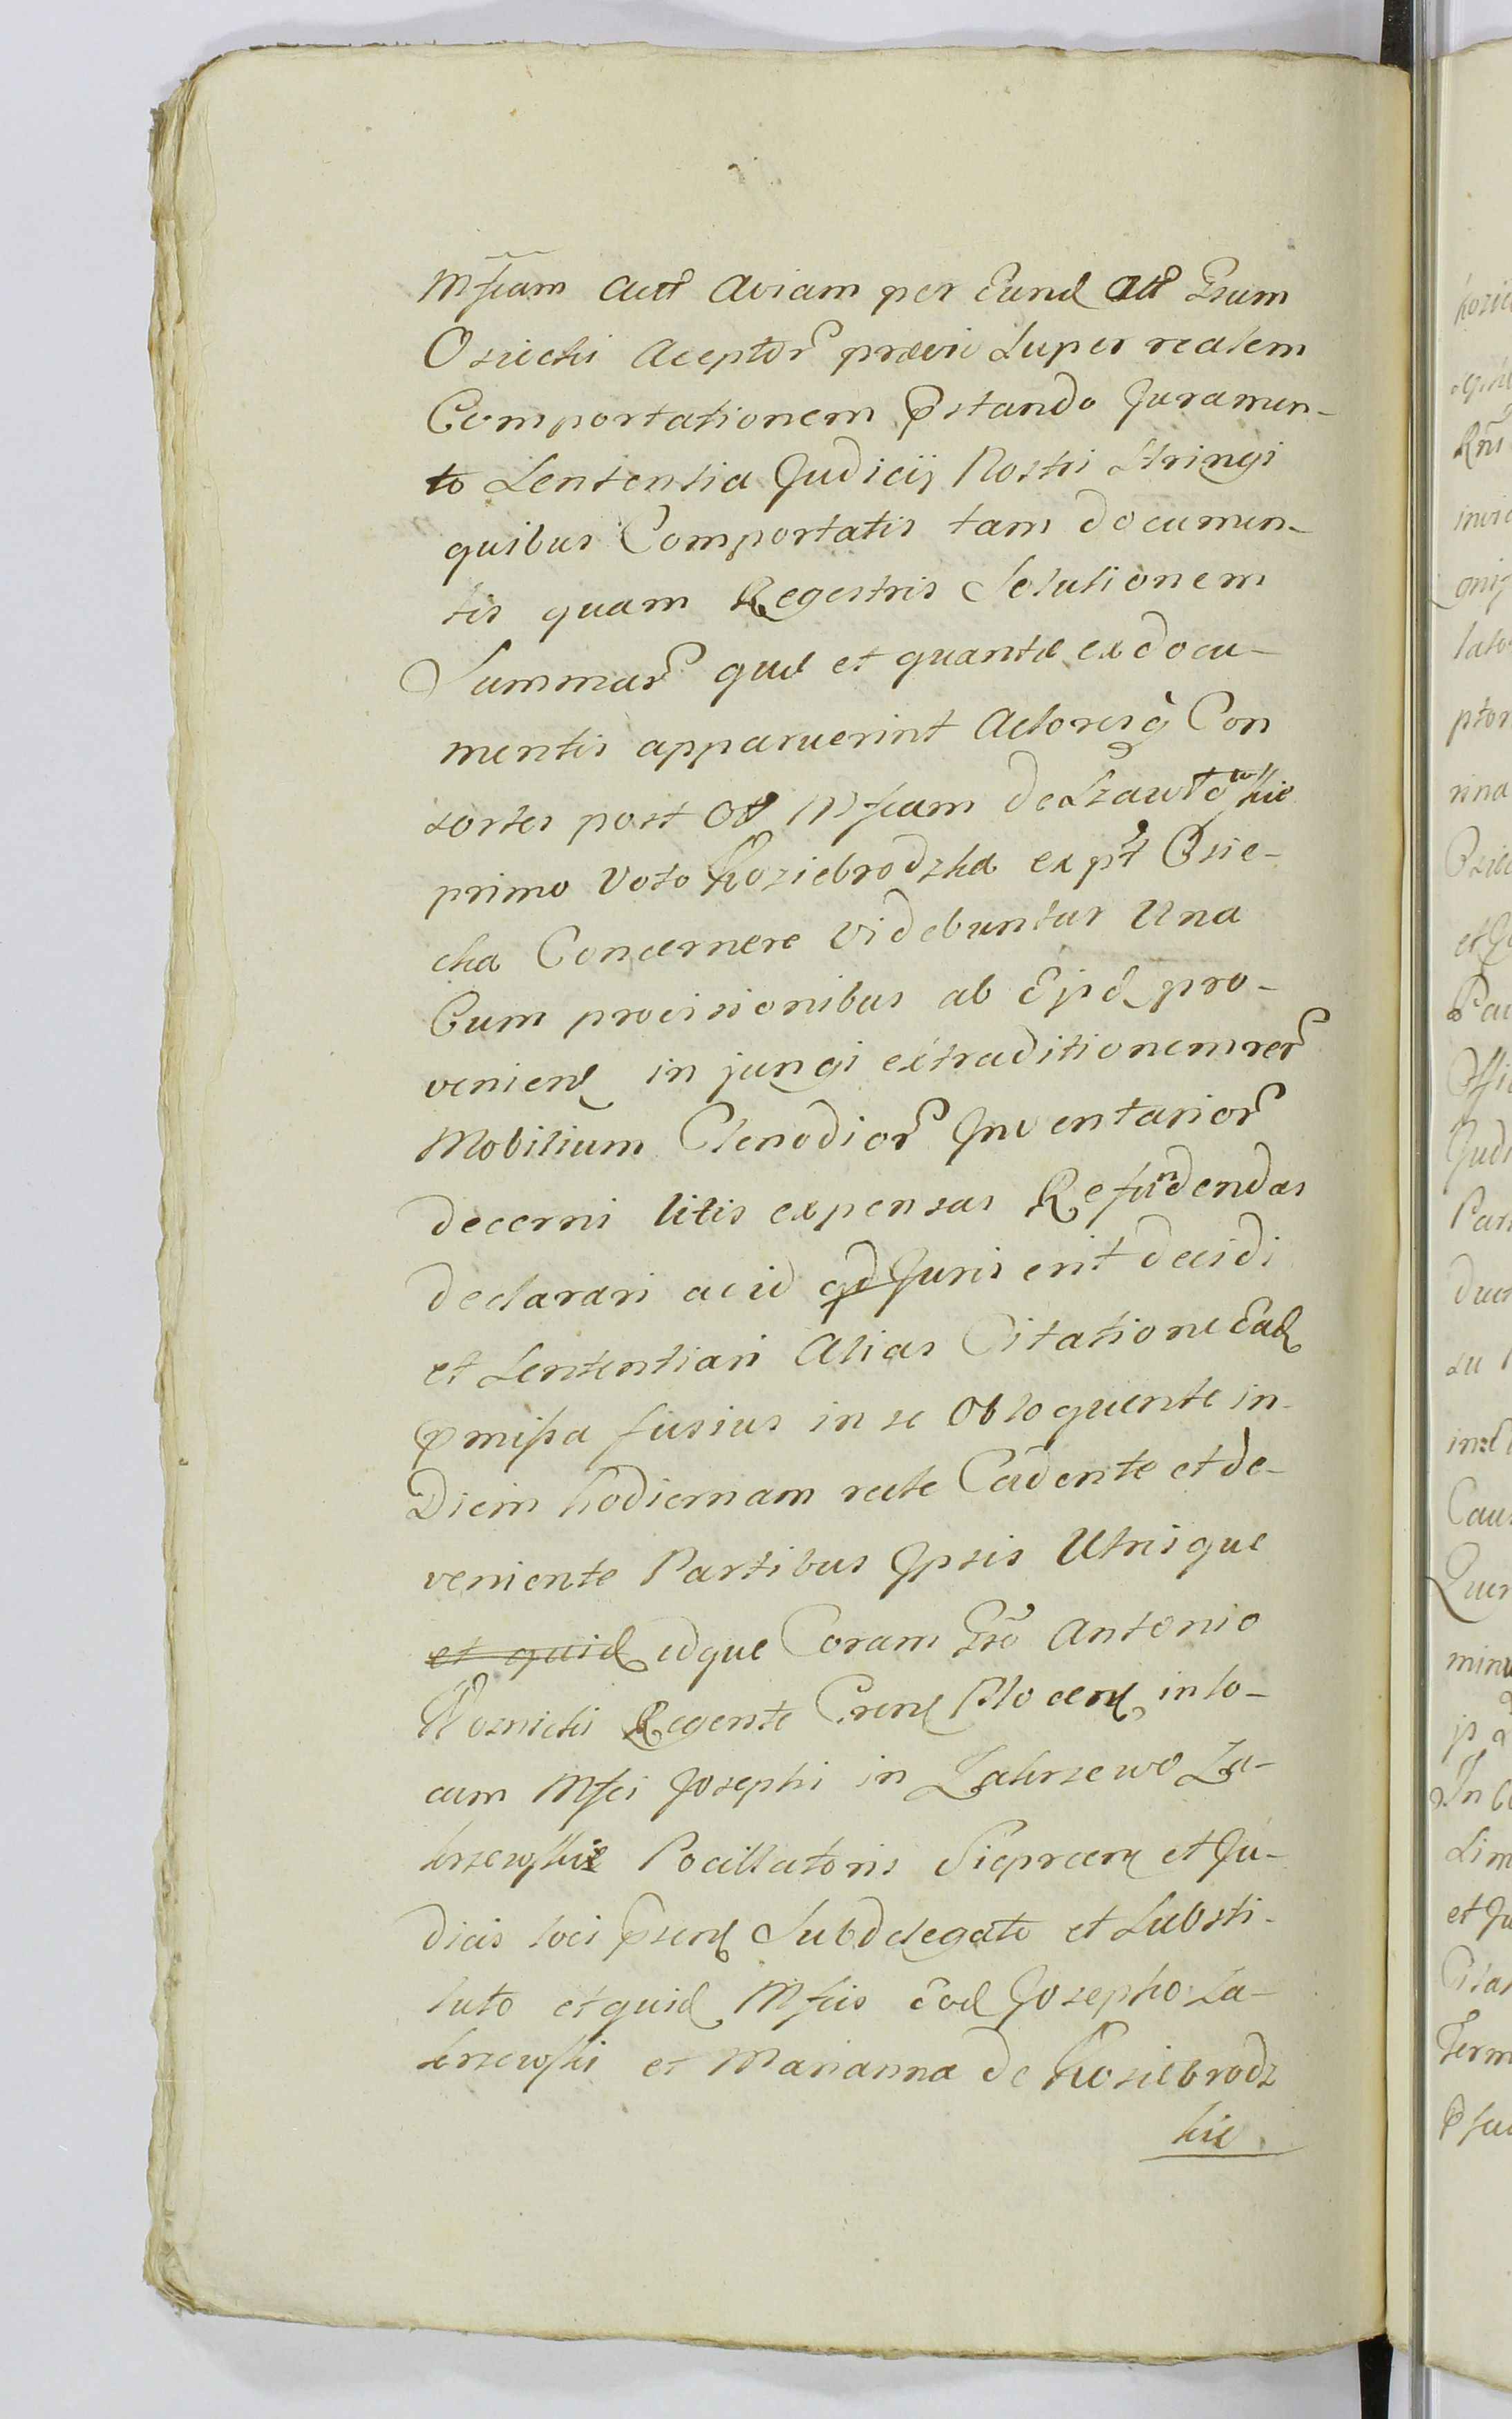 Mfcam Actt Aviam per Eund Att Gsum
Osiecki Aceptor prævie Super realem
Comportationem Pstando Juramen-
to Sententia Judicij Nostri Stringi
quibus Comportatis tam documen-
tis quam Regestris Solutionem
Summar quæ et quantæ ex docu-
mentis apparuerint Actoresq Con
sortes post Ol Mfcam de Szawlowskie
primo Voto Koziebrodzka ex pt Osie-
cka Concernere videbuntur Una
Cum provisionibus ab Ejsd pro-
venien in jungi extraditionem rer
Mobilium Clenodior Inventarior
decerni litis expensas Refundendas
declarari ac id qd Juris erit decidi
et Sententiari Alias Citatione Ead
Pmissa fusius in se Obloquente in
Diem hodiernam recte Cadente et de-
veniente Partibus Ipsis Utrisque
et quid idque Coram Gso Antonio
Woznicki Regente Cren Plocen in lo-
cum Mfci Josephi in Zakrzewo Za-
krzewskie Pocillatoris Sieprcen et Ju-
dicis loci Psen Subdelegato et Substi-
tuto et quid Mfcis Eod Josepho Za-
krzewski et Marianna de Koziebrodz
kie